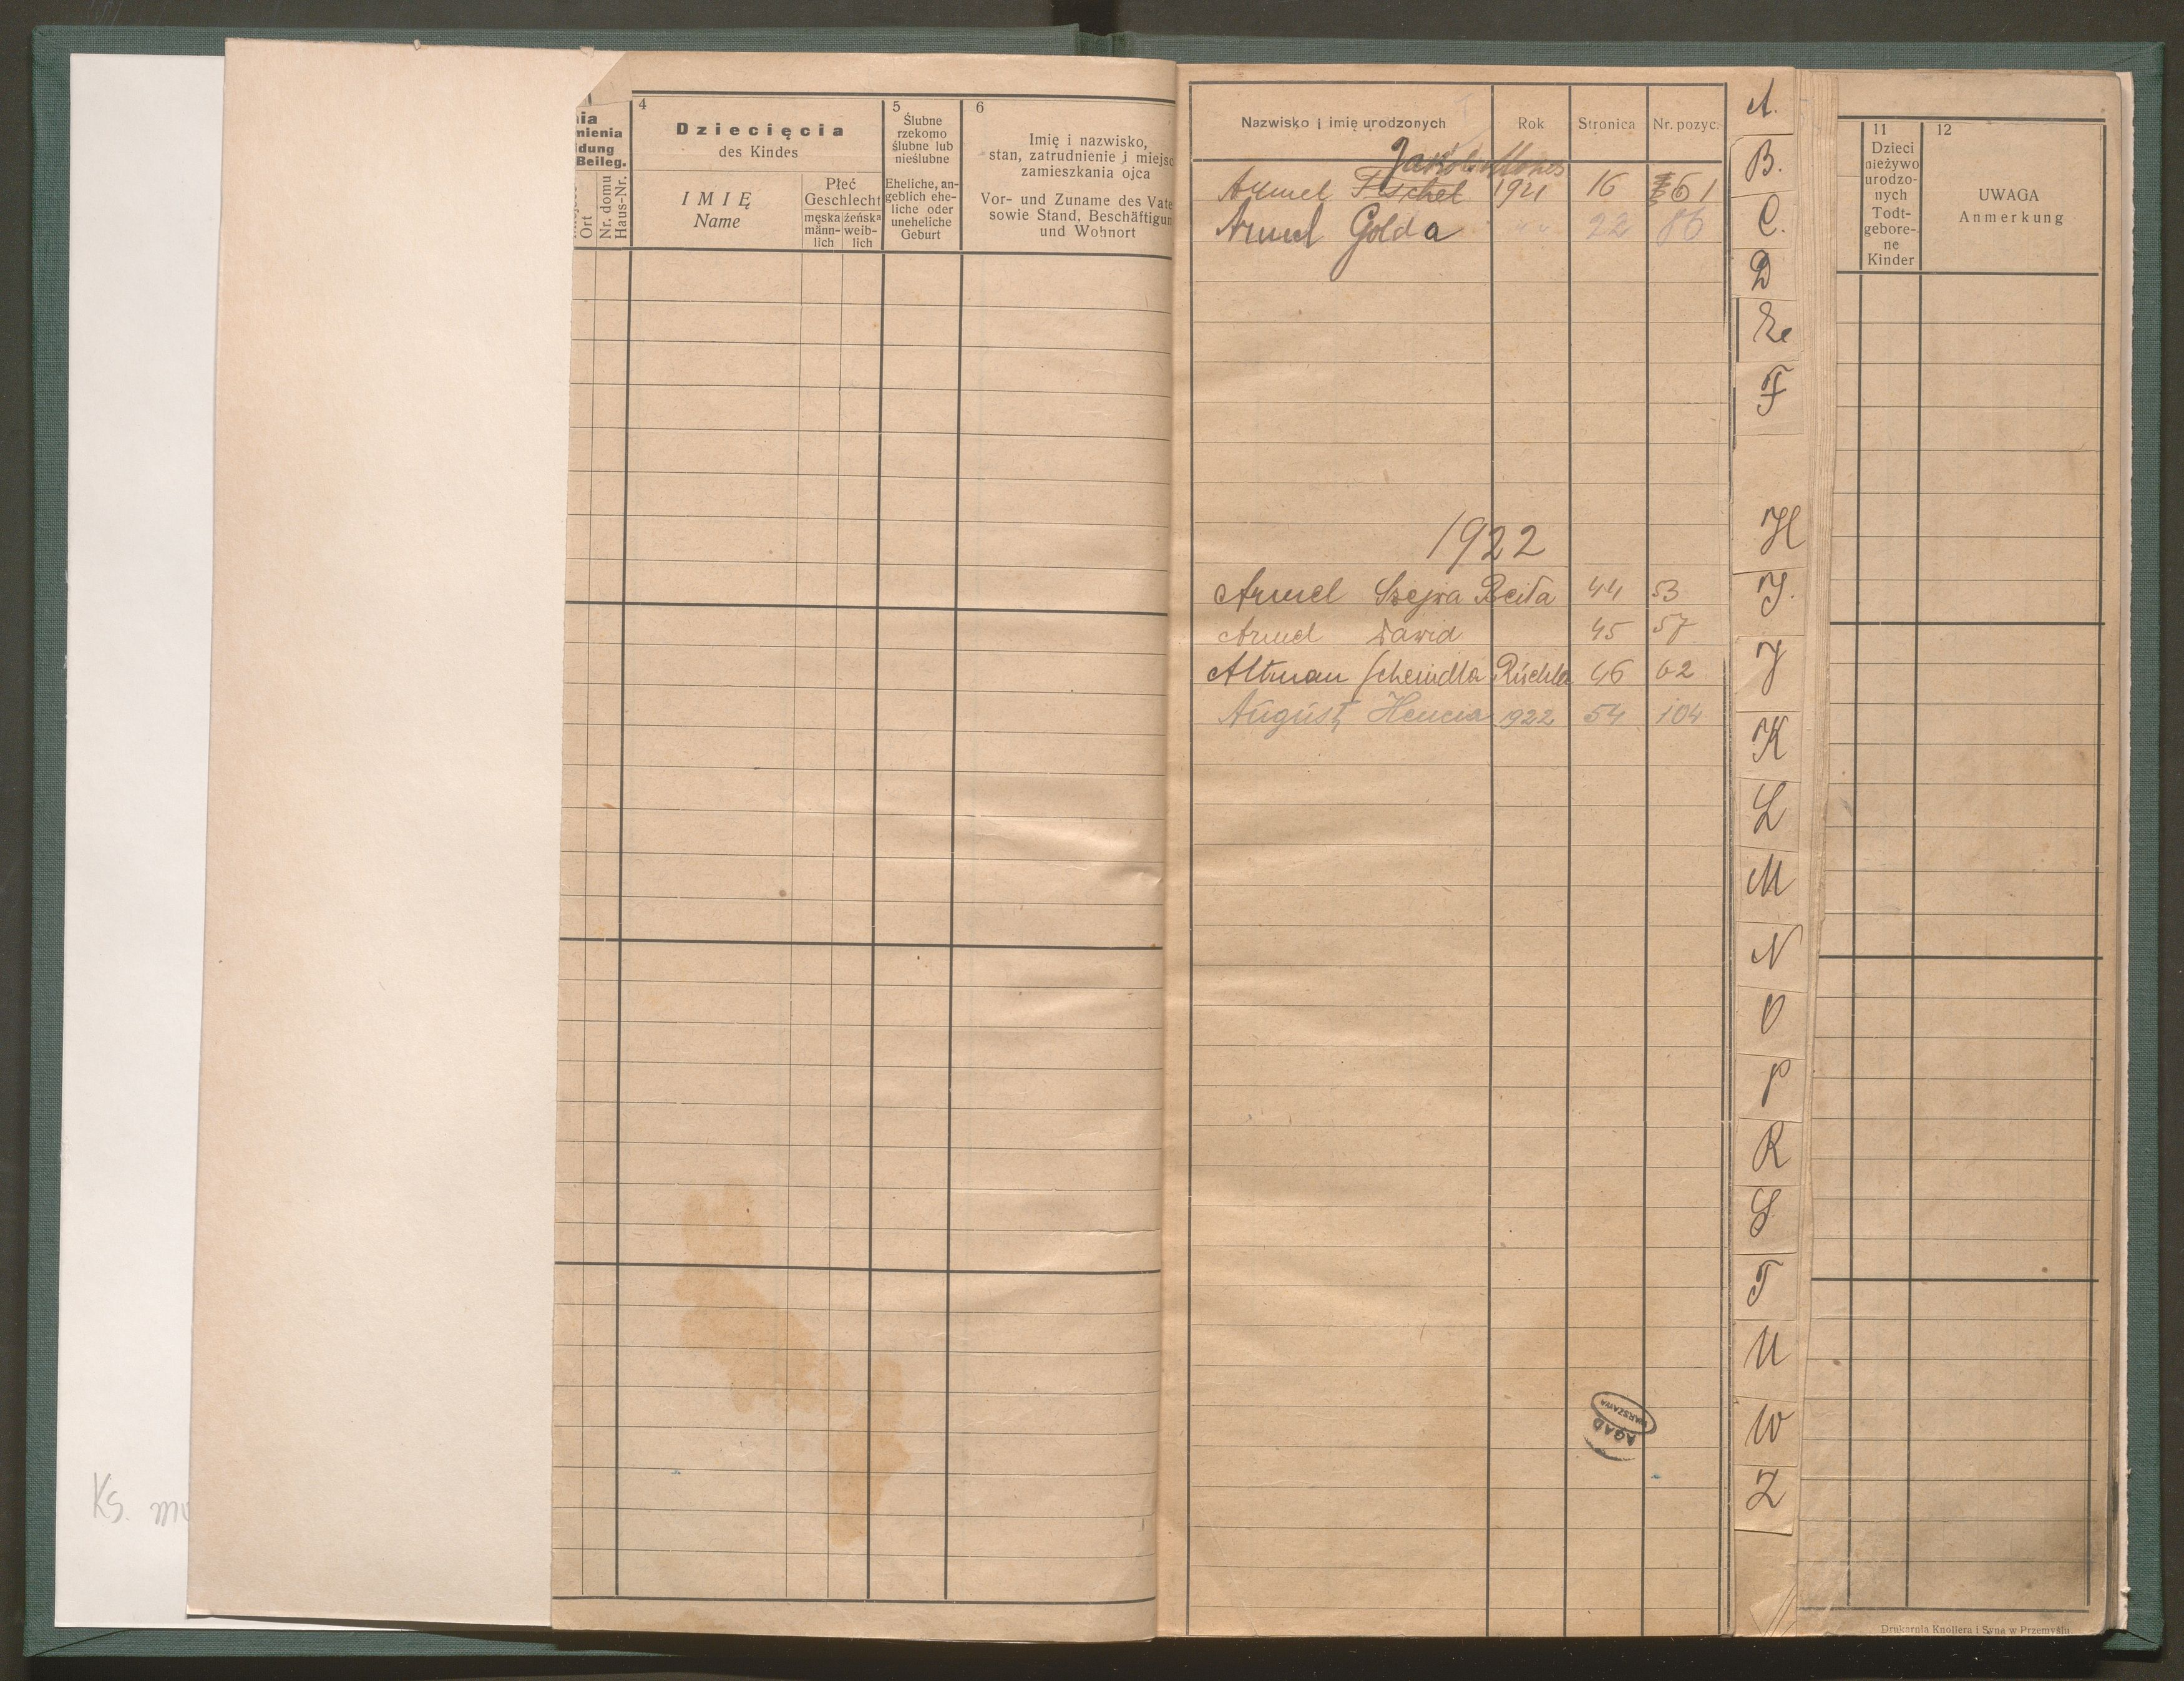 nia
mienia
ldung
Beileg.
Ort
Nr. domu
Haus-Nr.
4
Dziecięcia
des Kindes
IMIĘ
Name
Płeć
Geschlecht
męska
männ-
lich
żeńska
weib-
lich
5
Ślubne
rzekomo
ślubne lub
nieślubne
Eheliche, an-
geblich ehe-
liche oder
uneheliche
Geburt
6
Imię i nazwisko,
stan, zatrudnienie i miejsc
zamieszkania ojca
Vor- und Zuname des Vate
sowie Stand, Beschäftigun
und Wohnort
Nazwisko i imię urodzonych Rok Stronica Nr. pozyc.
Jakób Mones
Armel Fischel 1921 16 61
Armel Golda " " 22 86
1922
Armel Szejwa Beila 44 53
Armel Dawid 45 57
Altman Scheindla Rüchla 46 62
August Hencia 1922 54 104
AGAD
WARSZAWA
A.
B.
C.
D
E
F
H
I.
J
K
L
M
N
O
P
R
S
T
U
W
Z
11
Dzieci
nieżywo
urodzo-
nych
Todt-
gebore-
ne
Kinder
12
UWAGA
Anmerkung
Drukarnia Knollera i Syna w Przemyślu.
Ks.